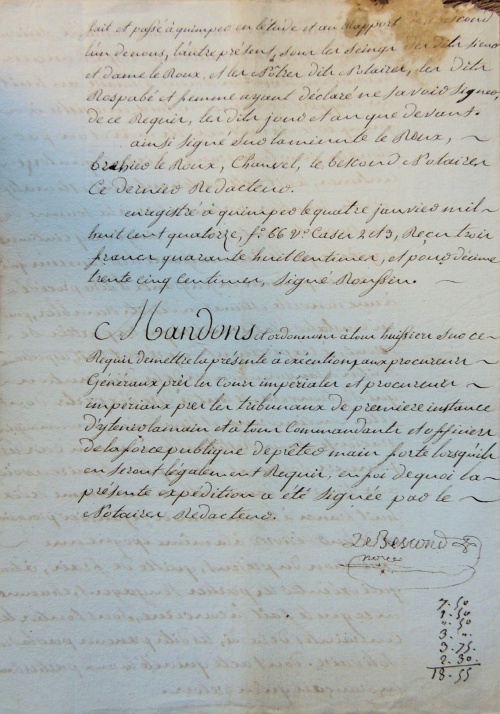 fait et passé à quimper en l'étude et au Rapport Bescond
l'un de nous, l'autre présent, sous les seings des dits sieur
et dame le Roux, et les Nôtres dits Notaires, les dits
Respabé et femme ayant déclaré ne savoir signer,
de ce Requis, les dits jour et an que devant.
ainsi signé sur la minute le Roux, ~
le Roux, Chauvel, le bescond Notaires
Ce dernier Rédacteur.
enregistré à quimper le quatre janvier mil
huit cent quatorze, f.o 66 V.o Cases 2 et 3, Reçu trois
francs quarante huit Centimes, et pour décime
trente cinq Centimes, signé Roussin. ~
Mandons et ordonnons à tous huissiers sur ce ~
Requis de mettre la présente à exécution, aux procureurs ~
Généraux près les Cours impériales et procureurs ~
impériaux près les tribunaux de première instance
d'y tenir la main et à tous Commandants et officiers
de la force publique de prêter main forte lorsqu'ils
en seront légalement Requis, en foi de quoi la ~
présente expédition a été signée par le ~
Notaire Rédacteur.
Le Bescond
nore
7. 50
1. 50
3. ".
3. 75.
2. 30.
18. 55